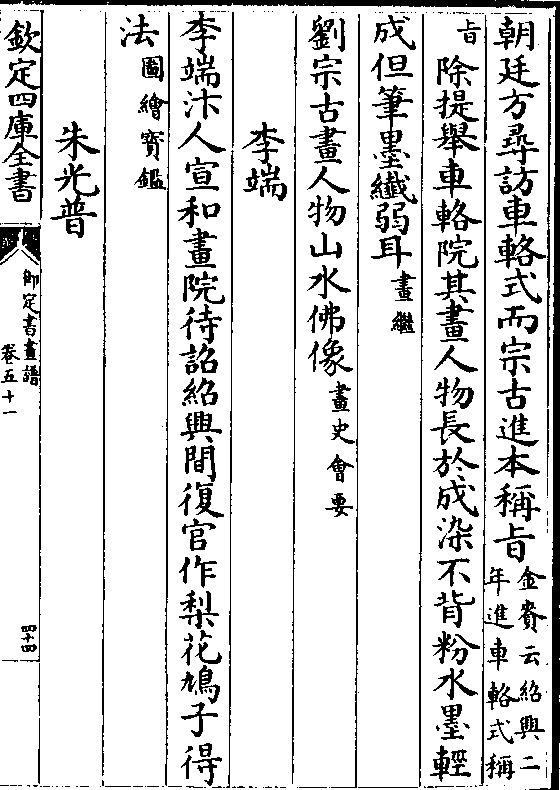 朝廷方尋訪車輅式而宗古進本稱㫖金賚云紹興二
年進車輅式稱
㫖除提舉車輅院其畫人物長於成染不背粉水墨輕
成但筆墨纖弱耳畫繼
劉宗古畫人物山水佛像畫史會要
李端
李端汴人宣和畫院待詔紹興間復官作梨花鳩子得
法圖繪寳鑑
朱光普
欽定四庫全書
御定書畫譜
卷五十一
四十四